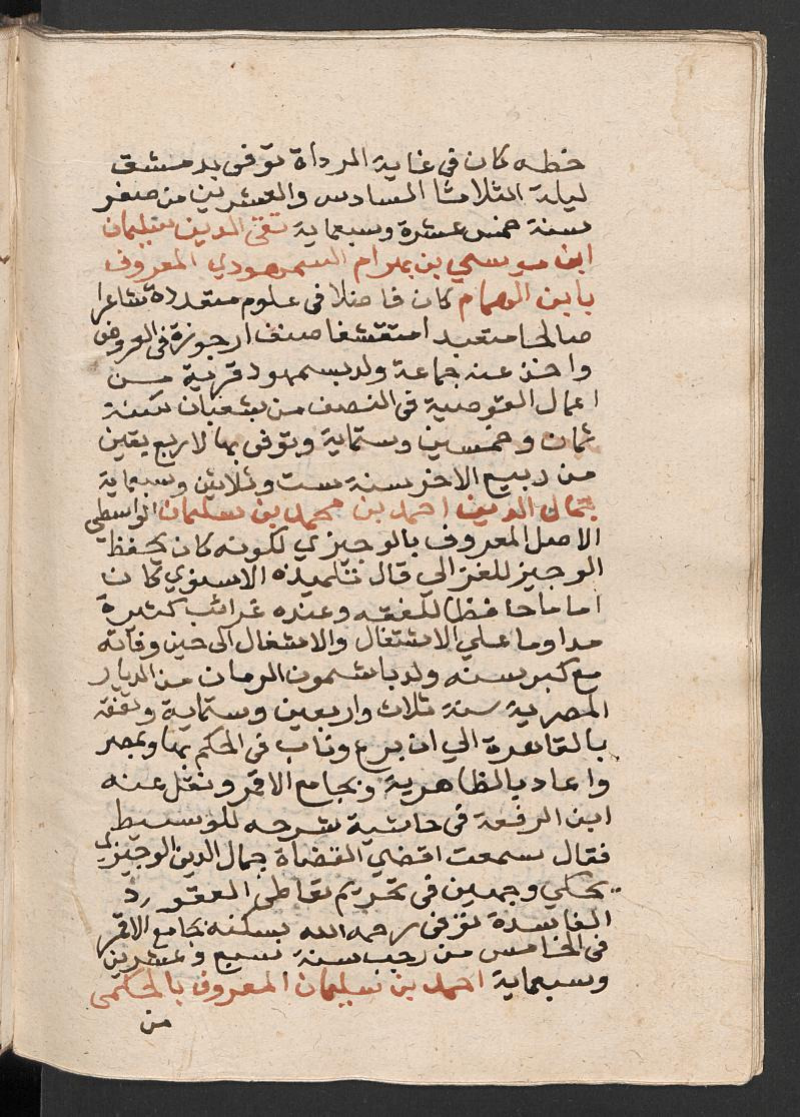 خطه كان في غاية المرداة توفي بدمشق
ليلة الثلاثا السادس والعشرين من صفر
سنة خمس عشرة وسبعماية تقي الدين سليمان
ابن موسي بن بهرام السمهودي المعروف
بابن الهمام كان فاضلا في علوم متعددة شاعرا
صالحا متعبدا متقشفا صنف ارجوزة في العروض
واخذ عنه جماعة ولد بسمهود قرية من
اعمال القوصية في النصف من شعبان سنة
ثمان وخمسين وستماية وتوفي بها لاربع بقين
من ربيع الاخر سنة ست وثلاثين وسبعماية
جمال الدين احمد بن محمد بن سليمان الواسطي
الاصل المعروف بالوجيزي لكونه كان يحفظ
الوجيز للغزالي قال تلميذه الاسنوي كان
اماما حافظا للفقه وعنده غرائب كثيرة
مداوما علي الاشتغال والاشغال الى حين وفاته
مع كبر سنه ولد باشمون الرمان من الديار
المصرية سنة ثلاث واربعين وستماية وتفقه
بالقاهرة الي ان برع وناب في الحكم بها وبمصر
واعاد بالظاهرية وبجامع الاقمر ونقل عنه
ابن الرفعة في حاشية شرحه للوسيط
فقال سمعت اقضي القضاة جمال الدين الوجيزي
يحكي وجهين في تحريم تعاطي العقود
الفاسدة توفي رحمه الله بسكنه بجامع الاقمر
في الخامس من رجب سنة سبع وعشرين
وسبعماية احمد بن سليمان المعروف بالحكمى
من